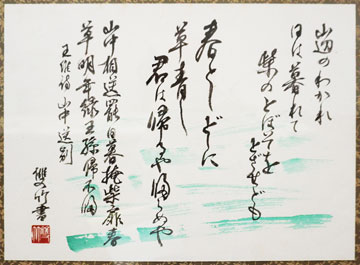 山辺のわかれ
日は暮れて
柴のとぼそを
とざせども
春としどしに
草青し
君は帰るや帰らめや
山中相送罷日暮掩柴扉春
草明年緑王孫帰不帰
王維詩 山中送別
竹書